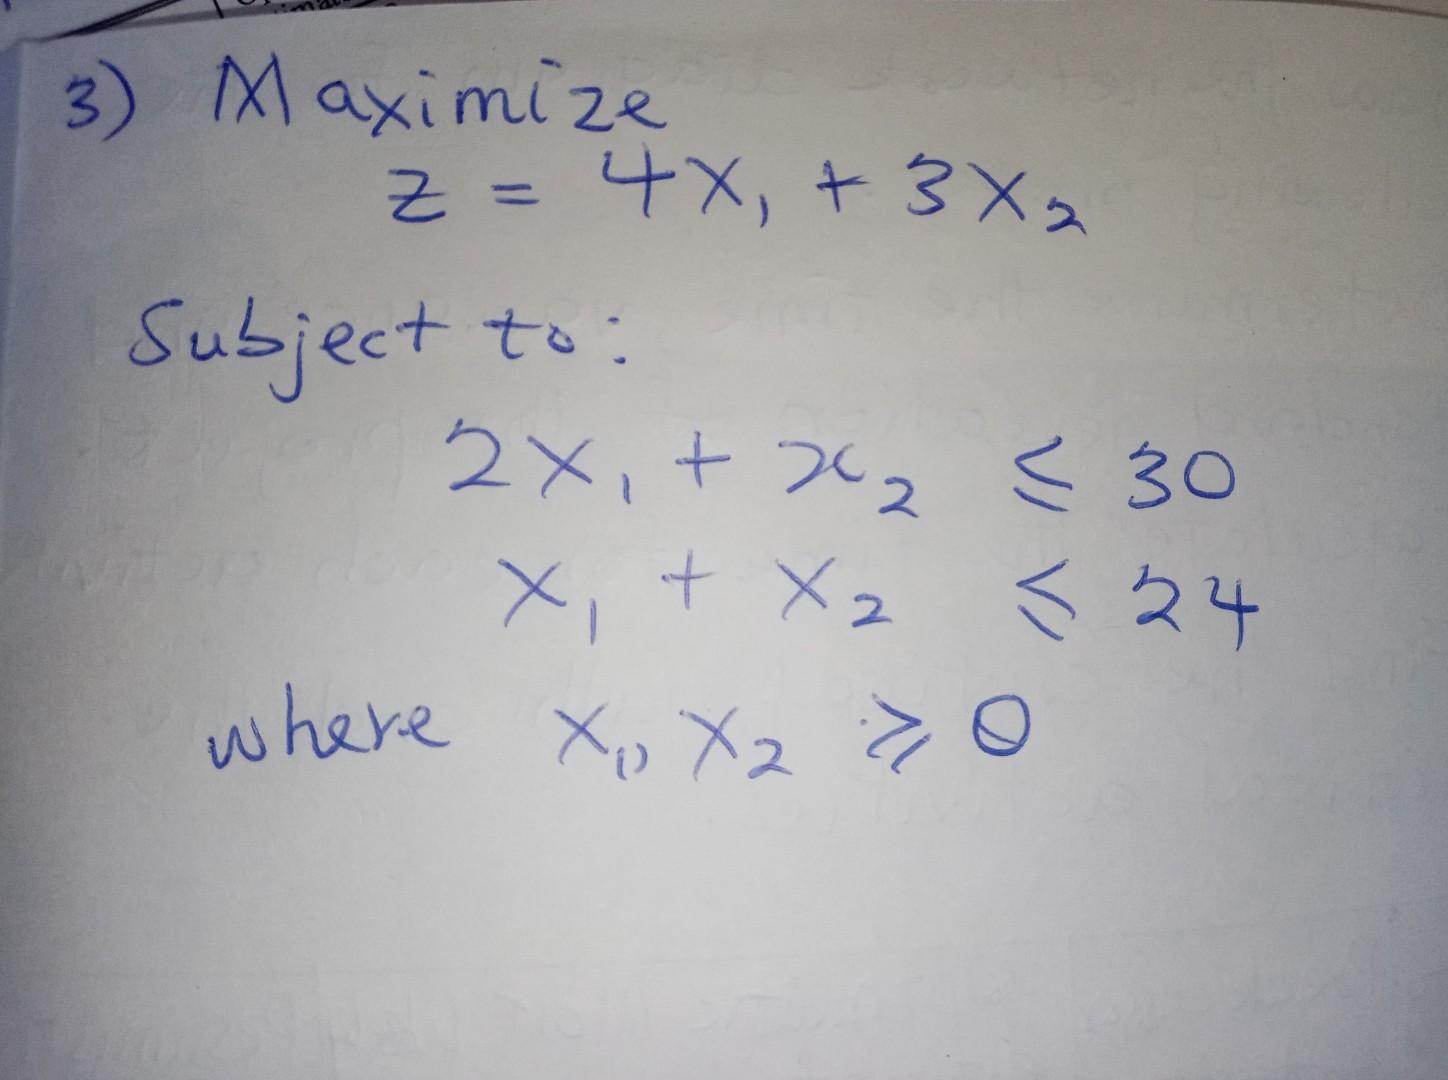 3) Maximize
z = 4x₁ + 3x₂
Subject to:
2x₁ + x₂ ⩽ 30
x₁ + x₂ ⩽ 24
where x₁, x₂ ⩾ 0